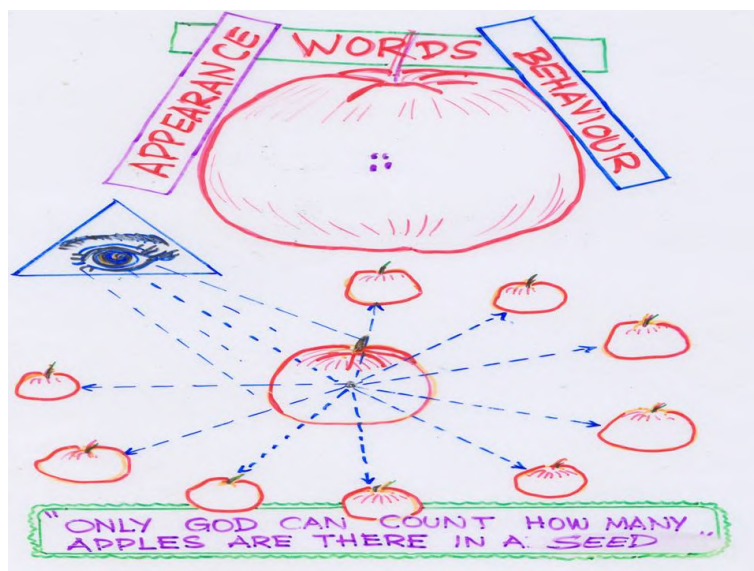 APPEARANCE
WORDS
BEHAVIOUR
"ONLY GOD CAN COUNT HOW MANY
APPLES ARE THERE IN A SEED"